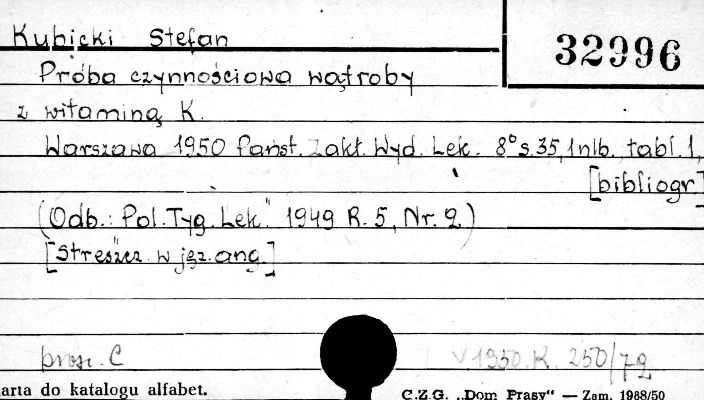 Kubicki Stefan
32996
Próba czynnościowa wątroby
z witaminą K.
Warszawa 1950 Państ. Zakł. Wyd. Lek. 8° s. 35, 1 nlb. tabl. 1,
[bibliogr.]
(Odb.: Pol. Tyg. Lek." 1949 R. 5, Nr. 2)
[Streszcz. w jęz. ang.]
C
1950. K. 250/72
arta do katalogu alfabet.
C.Z.G. „Dom Prasy" — Zam. 1988/50